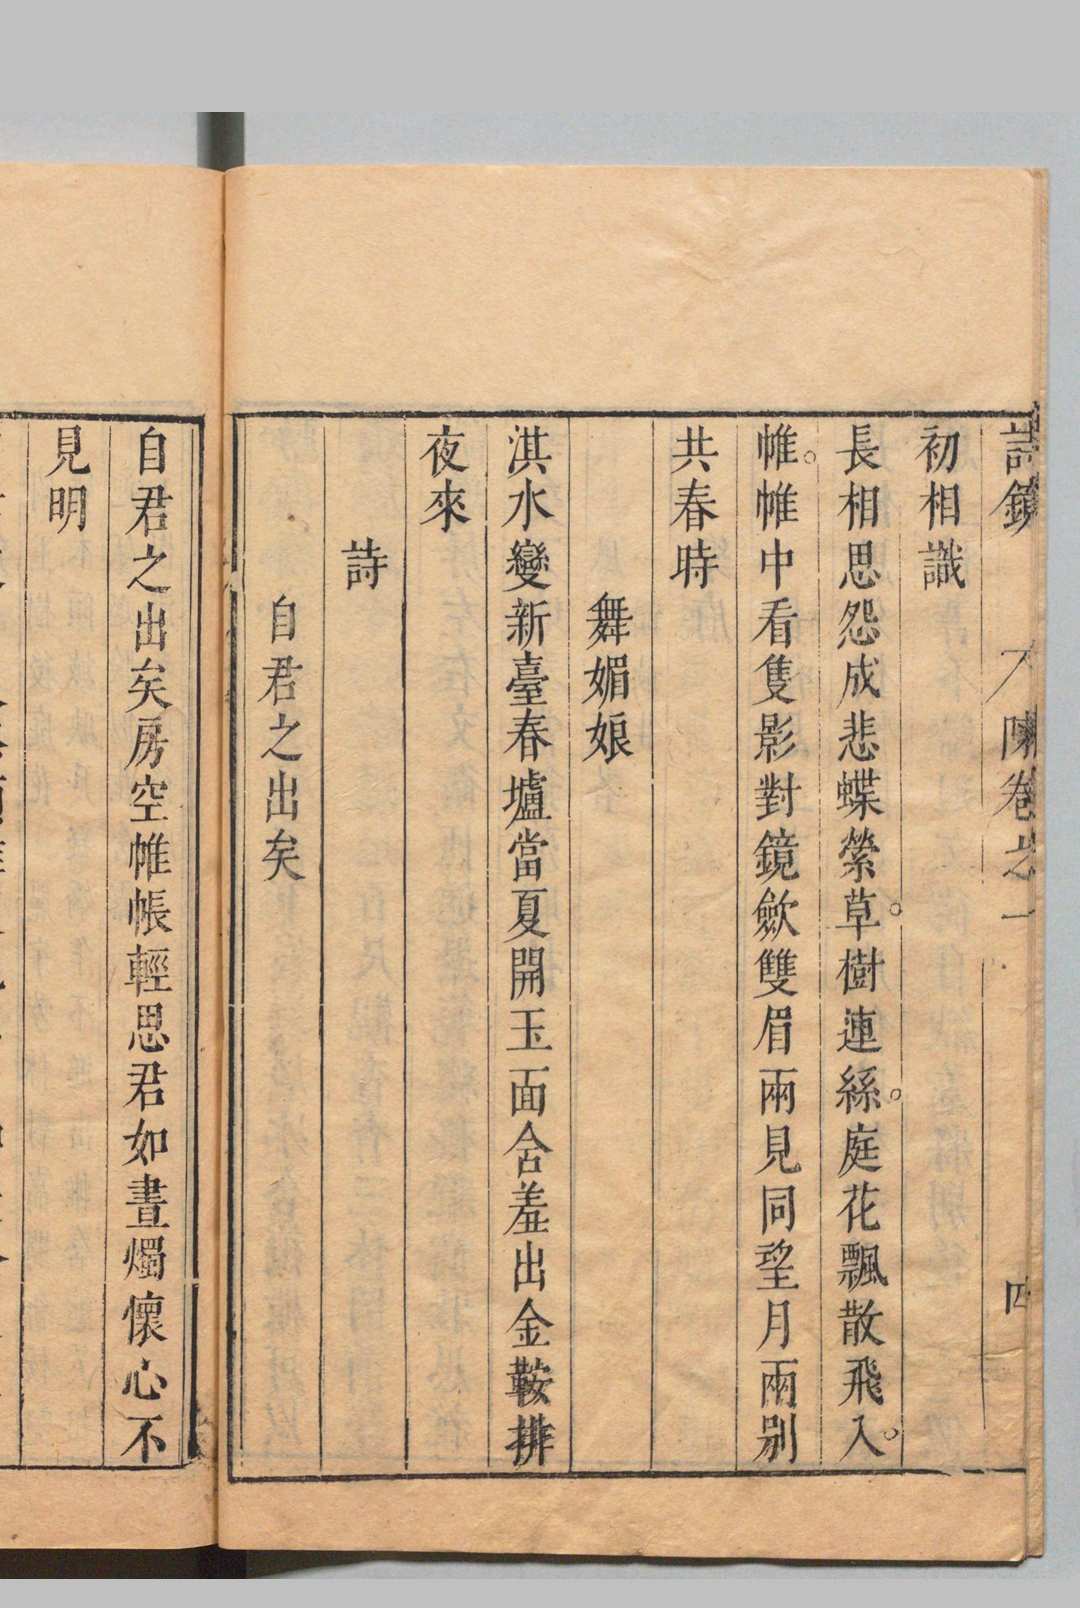 詩鏡 陳卷之一 四
初相識
長相思怨成悲蝶縈草樹連絲庭花飄散飛入
帷帷中看隻影對鏡斂雙眉兩見同望月兩別
共春時
舞媚娘
淇水變新臺春壚當夏開玉面含羞出金鞍排
夜來
詩
自君之出矣
自君之出矣房空帷帳輕思君如晝燭懷心不
見明